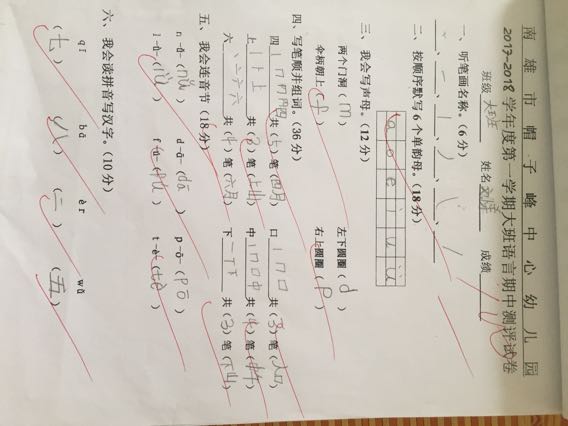 南雄市帽子峰中心幼儿园
2017-2018学年度第一学期大班语言期中测评试卷
班级 大班 姓名 成绩
一、听笔画名称。(6分)
二、按顺序默写6个单韵母。(18分)
a o e i u ü
三、我会写声母。(12分)
两个门洞(m) 左下圆圈(d)
伞柄朝上(f) 右上圆圈(p)
四、写笔顺并组词。(36分)
四 共(5)笔(四月) 口 丨 冂 口 共(3)笔(人口)
上 丨 卜 上 共(3)笔(上山) 中 丨 冂 口 中 共(4)笔(中午)
六 丶 亠 六 六 共(4)笔(六月) 下 一 丅 下 共(3)笔(下山)
五、我会连音节(18分)
n-ǚ-(nǚ) d-ā-(dā) p-ō-(pō)
六、我会读拼音写汉字。(10分)
qī bā èr wǔ
(七) (八) (二) (五)